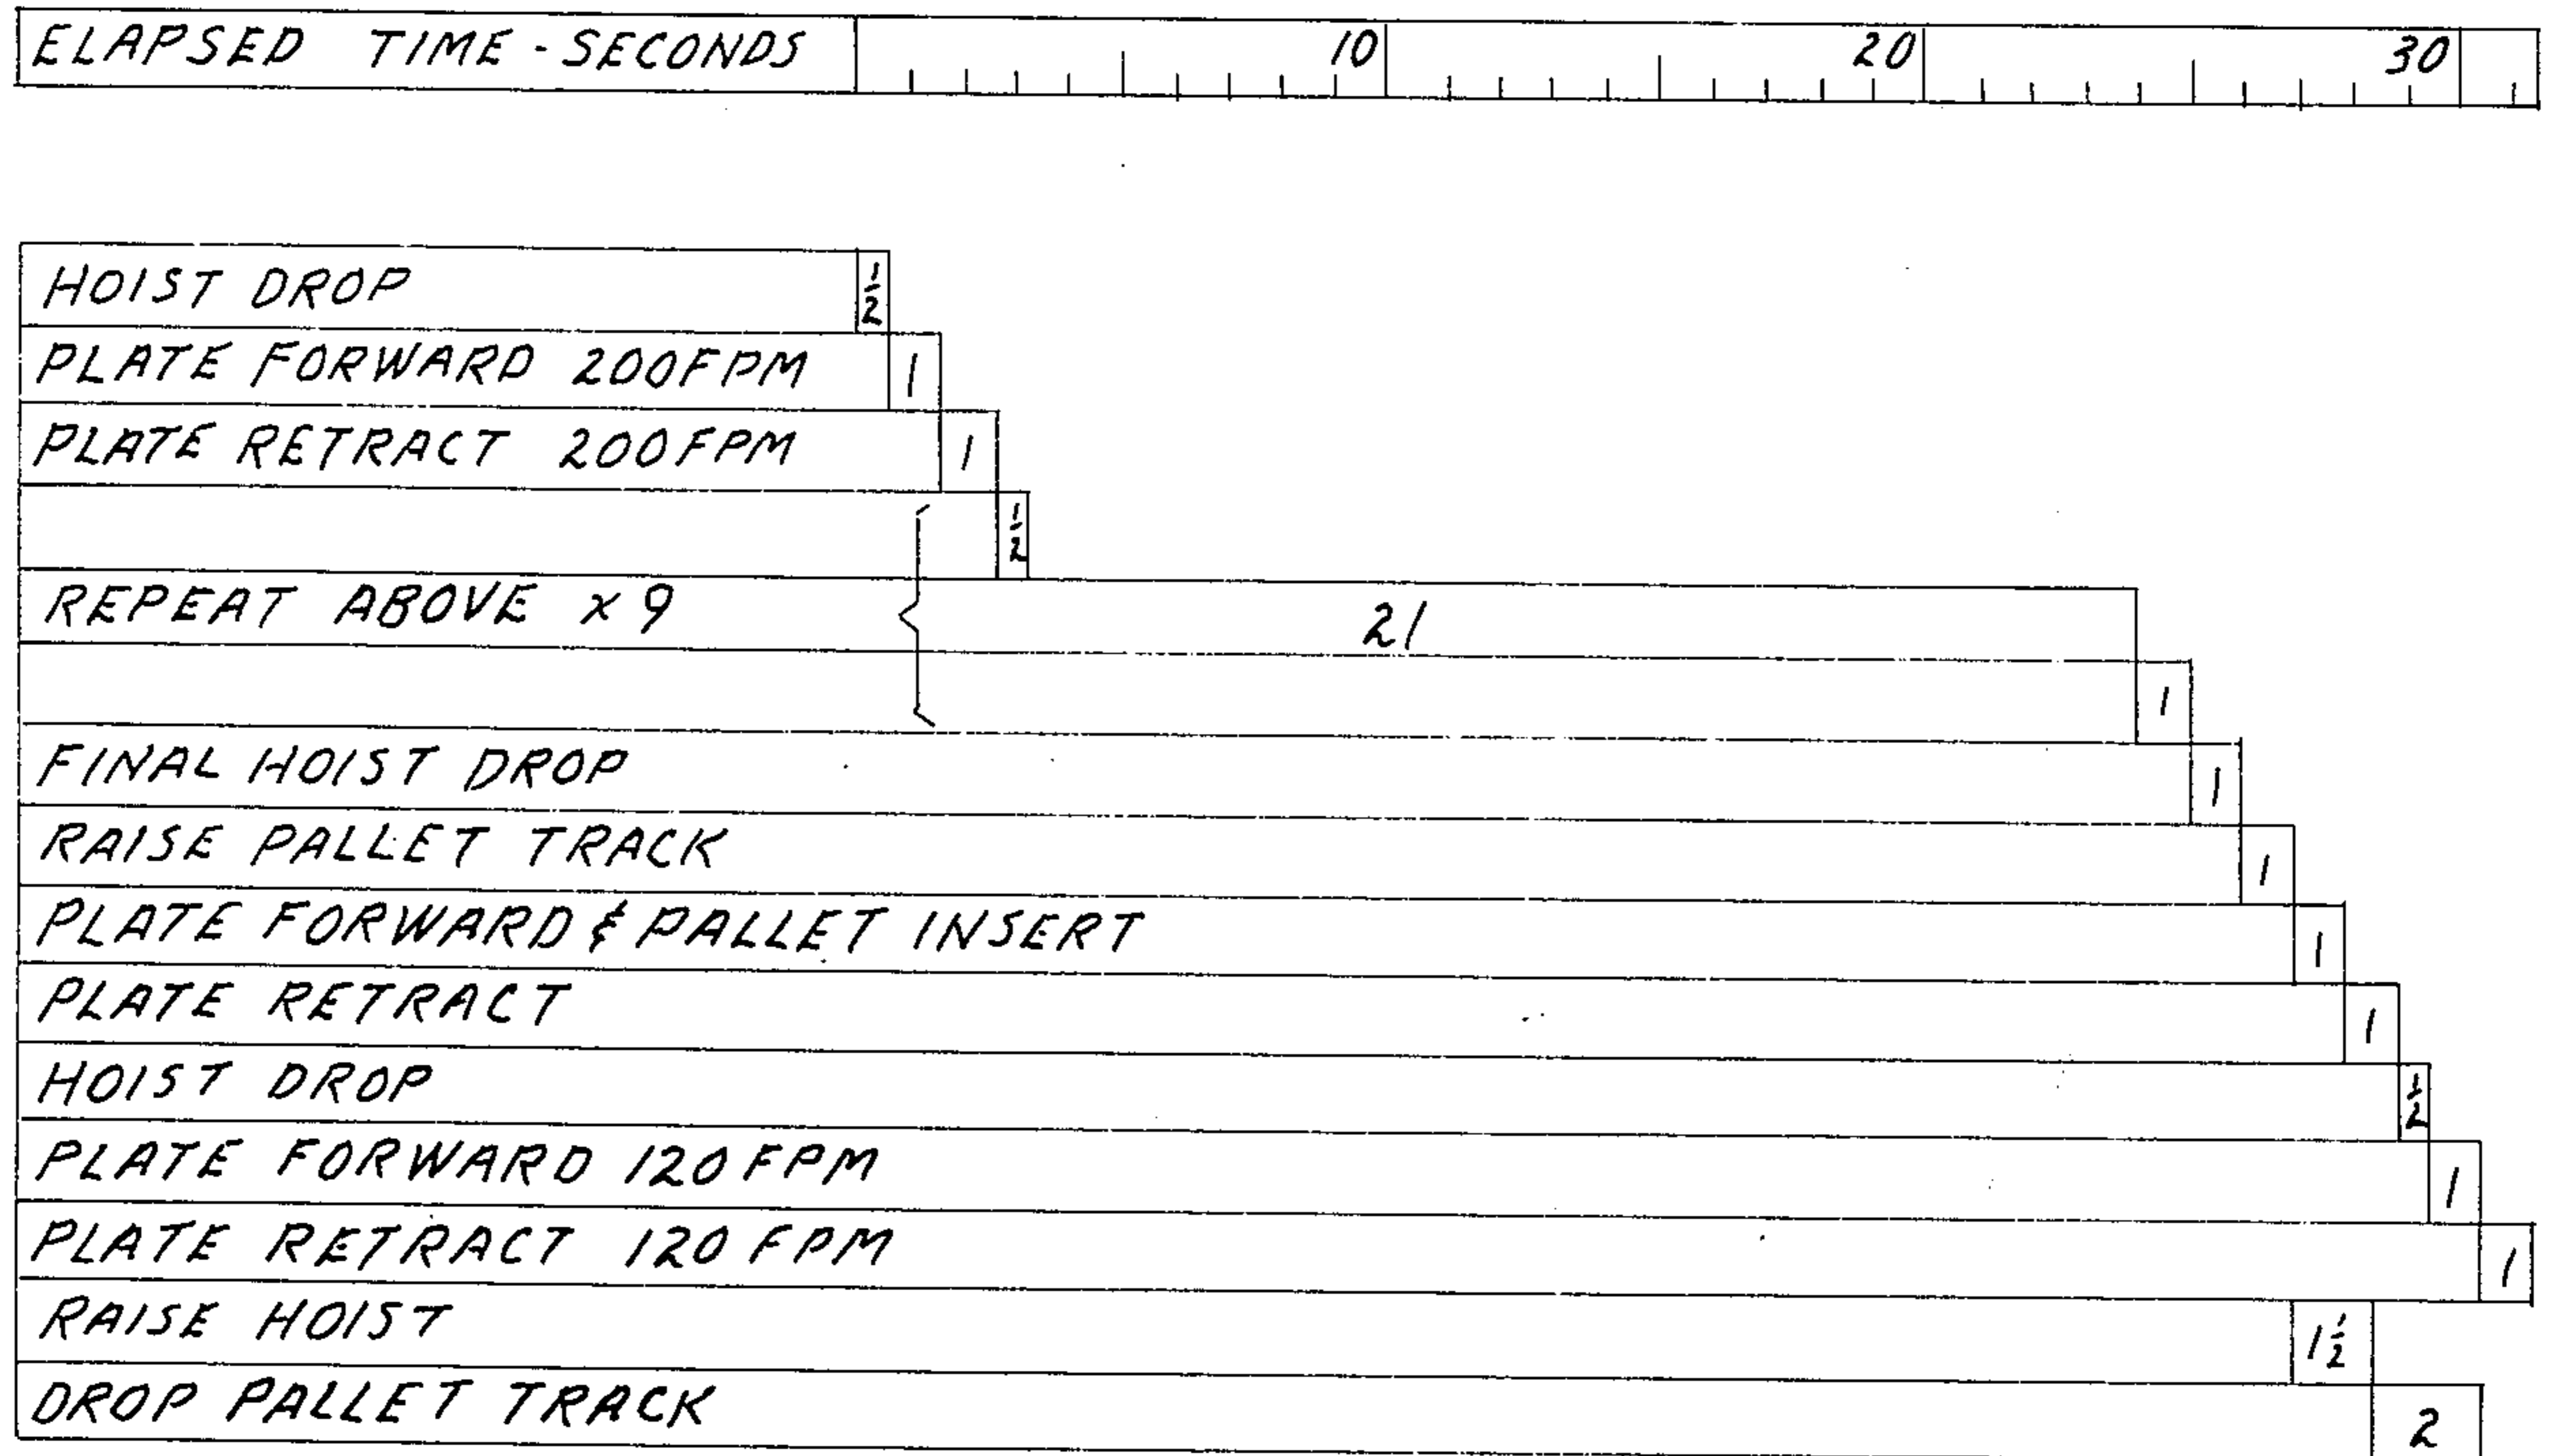 ELAPSED TIME - SECONDS 10 20 30
HOIST DROP 1/2
PLATE FORWARD 200FPM 1
PLATE RETRACT 200FPM 1
1/2
REPEAT ABOVE x 9 21
1
FINAL HOIST DROP 1
RAISE PALLET TRACK 1
PLATE FORWARD & PALLET INSERT 1
PLATE RETRACT 1
HOIST DROP 1/2
PLATE FORWARD 120FPM 1
PLATE RETRACT 120 FPM 1
RAISE HOIST 1 1/2
DROP PALLET TRACK 2